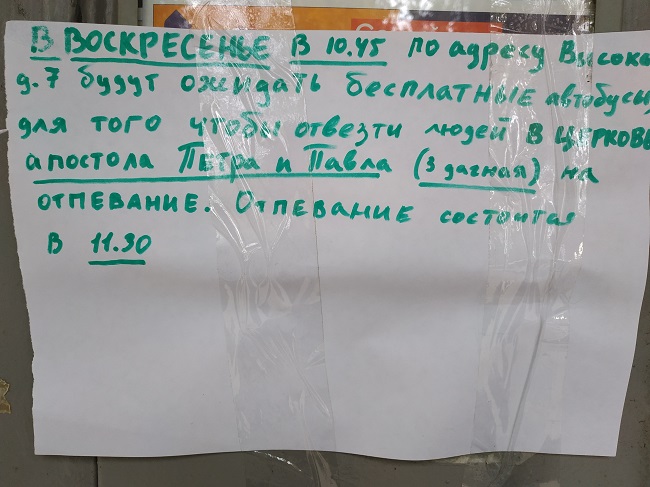 В ВОСКРЕСЕНЬЕ В 10.45 по адресу Высока
д.7 будут ожидать бесплатные автобусы,
для того чтобы отвезти людей в церковь
апостола Петра и Павла (3 дачная) на
отпевание. Отпевание состоится
в 11.30